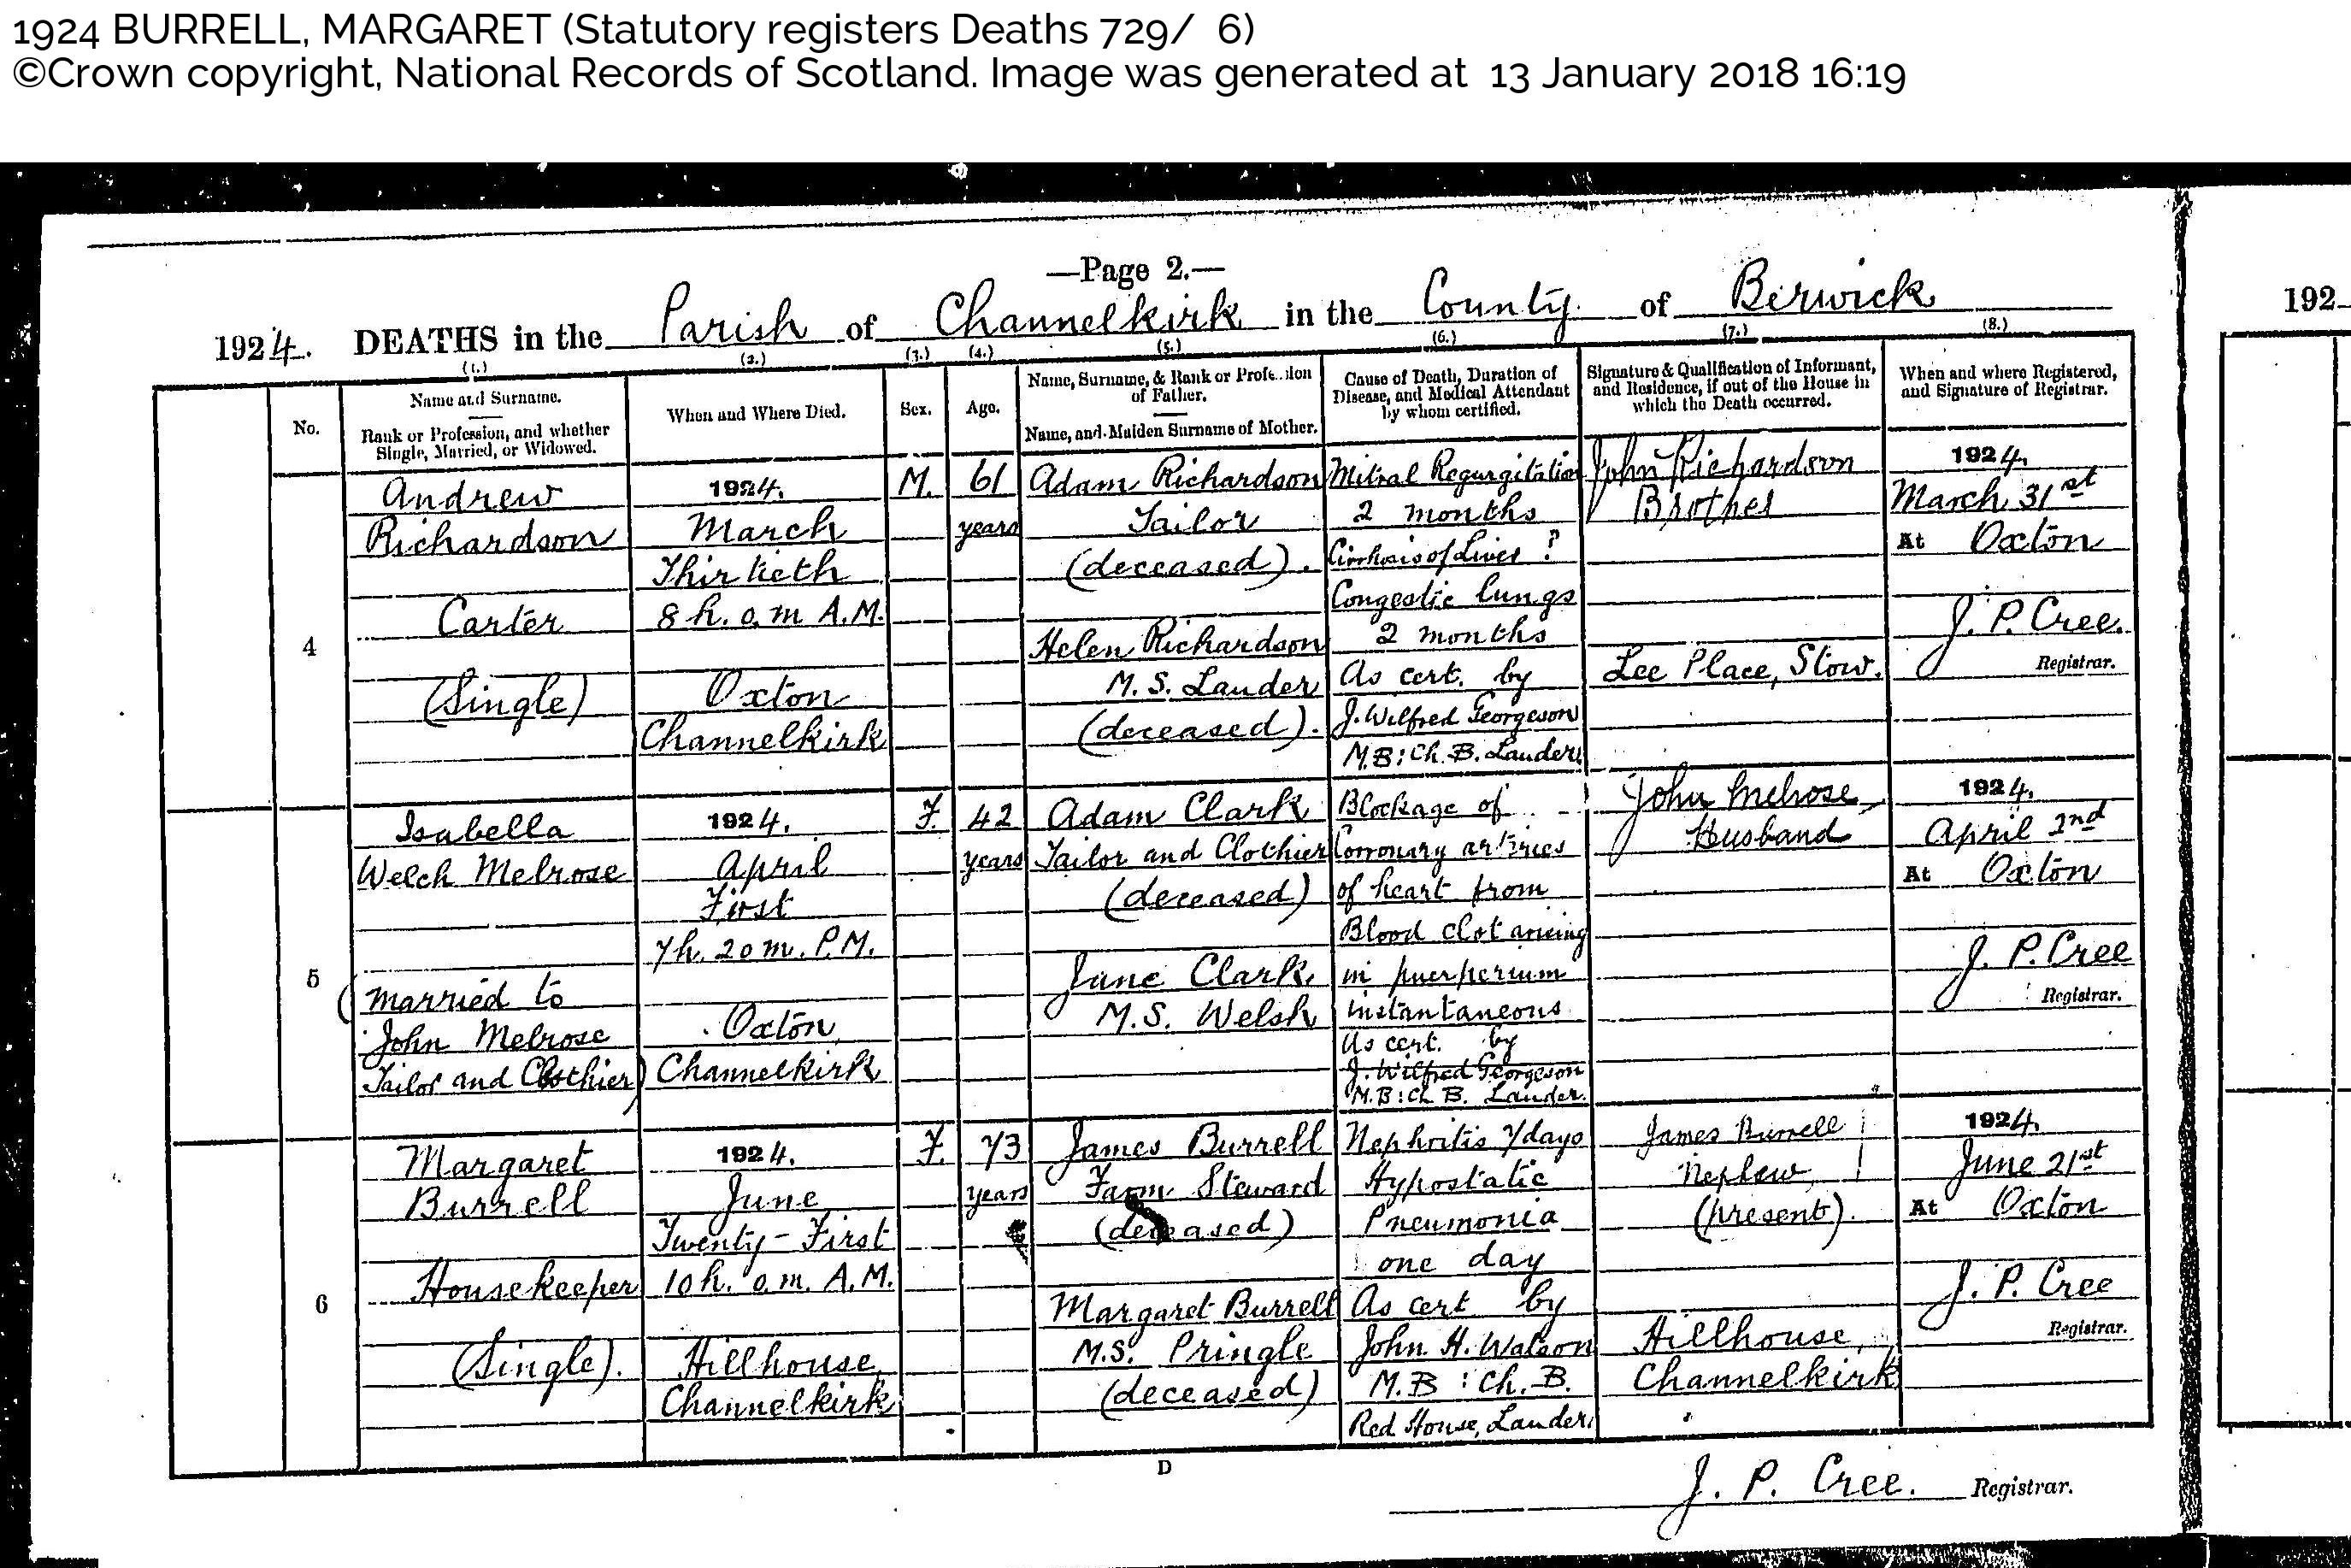 1924 BURRELL, MARGARET (Statutory registers Deaths 729/ 6)
©Crown copyright, National Records of Scotland. Image was generated at 13 January 2018 16:19
—Page 2.—
1924. DEATHS in the Parish of Channelkirk in the County of Berwick
192
(1.) (2.) (3.) (4.) (5.) (6.) (7.) (8.)
No.
Name and Surname.
Rank or Profession, and whether
Single, Married, or Widowed.
When and Where Died.
Sex.
Age.
Name, Surname, & Rank or Profession
of Father.
Name, and Maiden Surname of Mother.
Cause of Death, Duration of
Disease, and Medical Attendant
by whom certified.
Signature & Qualification of Informant,
and Residence, if out of the House in
which the Death occurred.
When and where Registered,
and Signature of Registrar.
4
Andrew
Richardson
Carter
(Single)
1924.
March
Thirtieth
8 h. 0. m A.M.
Oxton
Channelkirk
M.
61
years
Adam Richardson
Tailor
(deceased).
Helen Richardson
M. S. Lauder
(deceased).
Mitral Regurgitation
2 months
Cirrhosis of Liver ?
Congestic lungs
2 months
As cert. by
J. Wilfred Georgeson
M.B: Ch. B. Lauder.
John Richardson
Brother
Lee Place, Stow.
1924.
March 31st
At Oxton
J. P. Cree.
Registrar.
5
Isabella
Welch Melrose
(married to
John Melrose
Tailor and Clothier)
1924.
April
First
7 h. 20 m. P.M.
Oxton
Channelkirk
F.
42
years
Adam Clark
Tailor and Clothier
(deceased)
Jane Clark.
M.S. Welsh
Blockage of
Corronary arteries
of heart from
Blood clot arising
in puerperium
instantaneous
As cert. by
J. Wilfred Georgeson
M.B: Ch B. Lauder.
John Melrose
Husband
1924.
April 2nd
At Oxton
J. P. Cree
Registrar.
6
Margaret
Burrell
Housekeeper
(Single).
1924.
June
Twenty-First
10 h. 0. m. A.M.
Hillhouse
Channelkirk
F.
73
years
James Burrell
Farm Steward
(deceased)
Margaret Burrell
M.S. Pringle
(deceased)
Nephritis 7 days
Hypostatic
Pneumonia
one day
As cert by
John H. Watson
M.B : Ch. B.
Red House, Lauder.
James Burrell
Nephew,
(present).
Hillhouse,
Channelkirk
1924.
June 21st
At Oxton
J. P. Cree
Registrar.
D
J. P. Cree. Registrar.